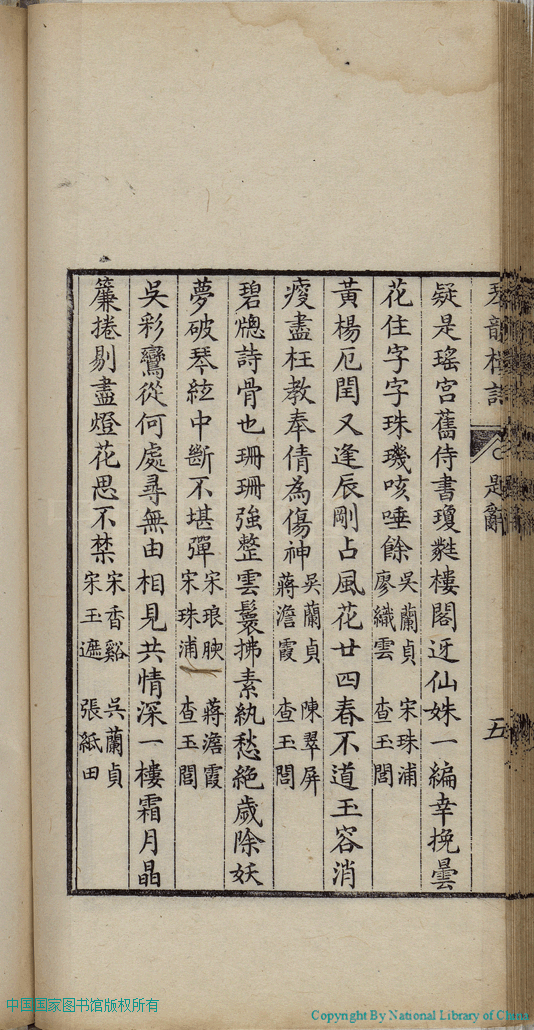 五
疑是瑤宮舊侍書瓊甤樓閣迓仙姝一編幸挽曇
花住字字珠璣咳唾餘
吳蘭貞　宋珠浦
廖織雲　查玉閭
黃楊厄閏又逢辰剛占風花廿四春不道玉容消
瘦盡枉教奉倩為傷神
吳蘭貞　陳翠屏
蔣澹霞　查玉閭
碧牕詩骨也珊珊強整雲鬟拂素紈愁絕歲除妖
夢破琴絃中斷不堪彈
宋琅腴　蔣澹霞
宋珠浦　查玉閭
吳彩鸞從何處尋無由相見共情深一樓霜月晶
簾捲剔盡燈花思不禁
宋香谿　吳蘭貞
宋玉遮　張紙田
中国国家图书馆版权所有
Copyright By National Library of China